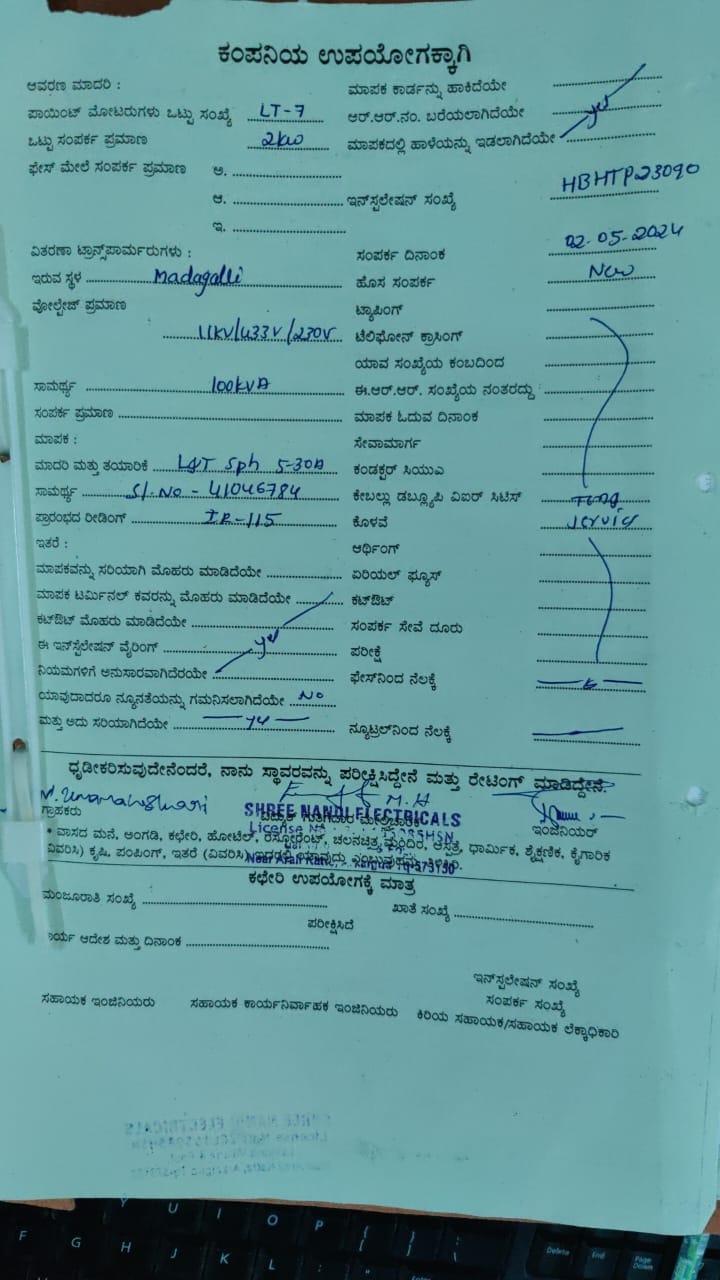 ಕಂಪನಿಯ ಉಪಯೋಗಕ್ಕಾಗಿ
ಆವರಣ ಮಾದರಿ :
ಮಾಪಕ ಕಾರ್ಡನ್ನು ಹಾಕಿದೆಯೇ
ಪಾಯಿಂಟ್ ಮೋಟರುಗಳು ಒಟ್ಟು ಸಂಖ್ಯೆ LT-7
ಆರ್.ಆರ್.ನಂ. ಬರೆಯಲಾಗಿದೆಯೇ yes
ಒಟ್ಟು ಸಂಪರ್ಕ ಪ್ರಮಾಣ 2kw
ಮಾಪಕದಲ್ಲಿ ಹಾಳೆಯನ್ನು ಇಡಲಾಗಿದೆಯೇ
ಫೇಸ್ ಮೇಲೆ ಸಂಪರ್ಕ ಪ್ರಮಾಣ ಅ.
ಆ.
ಇನ್‌ಸ್ಟಲೇಷನ್ ಸಂಖ್ಯೆ HBHTP23090
ಇ.
ವಿತರಣಾ ಟ್ರಾನ್ಸ್‌ಫಾರ್ಮರುಗಳು :
ಸಂಪರ್ಕ ದಿನಾಂಕ 02-05-2024
ಇರುವ ಸ್ಥಳ Madagalli
ಹೊಸ ಸಂಪರ್ಕ New
ವೋಲ್ಟೇಜ್ ಪ್ರಮಾಣ
ಟ್ಯಾಪಿಂಗ್
11kV/433V/230V
ಟೆಲಿಫೋನ್ ಕ್ರಾಸಿಂಗ್
ಯಾವ ಸಂಖ್ಯೆಯ ಕಂಬದಿಂದ
ಸಾಮರ್ಥ್ಯ 100kVA
ಈ.ಆರ್.ಆರ್. ಸಂಖ್ಯೆಯ ನಂತರದ್ದು
ಸಂಪರ್ಕ ಪ್ರಮಾಣ
ಮಾಪಕ ಓದುವ ದಿನಾಂಕ
ಮಾಪಕ :
ಸೇವಾಮಾರ್ಗ
ಮಾದರಿ ಮತ್ತು ತಯಾರಿಕೆ L&T Sph 5-30A
ಕಂಡಕ್ಟರ್ ಸಿಯುಎ
ಸಾಮರ್ಥ್ಯ Sl.No - 41046784
ಕೇಬಲ್ಲು ಡಬ್ಲ್ಯೂಪಿ ವಿಐರ್ ಸಿಟಿಸ್
ಪ್ರಾರಂಭದ ರೀಡಿಂಗ್ IR-115
ಕೊಳವೆ
ಇತರೆ :
ಆರ್ಥಿಂಗ್
ಮಾಪಕವನ್ನು ಸರಿಯಾಗಿ ಮೊಹರು ಮಾಡಿದೆಯೇ
ಏರಿಯಲ್ ಫ್ಯೂಸ್
ಮಾಪಕ ಟರ್ಮಿನಲ್ ಕವರನ್ನು ಮೊಹರು ಮಾಡಿದೆಯೇ
ಕಟ್‌ಔಟ್
ಕಟ್‌ಔಟ್ ಮೊಹರು ಮಾಡಿದೆಯೇ
ಸಂಪರ್ಕ ಸೇವೆ ದೂರು
ಈ ಇನ್‌ಸ್ಟಲೇಷನ್ ವೈರಿಂಗ್ yes
ಪರೀಕ್ಷೆ
ನಿಯಮಗಳಿಗೆ ಅನುಸಾರವಾಗಿದೆರಯೇ
ಫೇಸ್‌ನಿಂದ ನೆಲಕ್ಕೆ
ಯಾವುದಾದರೂ ನ್ಯೂನತೆಯನ್ನು ಗಮನಿಸಲಾಗಿದೆಯೇ No
ಮತ್ತು ಅದು ಸರಿಯಾಗಿದೆಯೇ
ನ್ಯೂಟ್ರಲ್‌ನಿಂದ ನೆಲಕ್ಕೆ
ಧೃಡೀಕರಿಸುವುದೇನೆಂದರೆ, ನಾನು ಸ್ಥಾವರವನ್ನು ಪರೀಕ್ಷಿಸಿದ್ದೇನೆ ಮತ್ತು ರೇಟಿಂಗ್ ಮಾಡಿದ್ದೇನೆ.
SHREE NANDI ELECTRICALS
ಗ್ರಾಹಕರು
ಇಂಜಿನಿಯರ್
* ವಾಸದ ಮನೆ, ಅಂಗಡಿ, ಕಛೇರಿ, ಹೋಟೆಲ್, ರೆಸ್ಟೋರೆಂಟ್, ಚಲನಚಿತ್ರ ಮಂದಿರ, ಆಸ್ಪತ್ರೆ, ಧಾರ್ಮಿಕ, ಶೈಕ್ಷಣಿಕ, ಕೈಗಾರಿಕ
ವಿವರಿಸಿ) ಕೃಷಿ, ಪಂಪಿಂಗ್, ಇತರೆ (ವಿವರಿಸಿ)
ಕಛೇರಿ ಉಪಯೋಗಕ್ಕೆ ಮಾತ್ರ
ಮಂಜೂರಾತಿ ಸಂಖ್ಯೆ
ಖಾತೆ ಸಂಖ್ಯೆ
ಪರೀಕ್ಷಿಸಿದೆ
ಕಾರ್ಯ ಆದೇಶ ಮತ್ತು ದಿನಾಂಕ
ಇನ್‌ಸ್ಟಲೇಷನ್ ಸಂಖ್ಯೆ
ಸಂಪರ್ಕ ಸಂಖ್ಯೆ
ಸಹಾಯಕ ಇಂಜಿನಿಯರು ಸಹಾಯಕ ಕಾರ್ಯನಿರ್ವಾಹಕ ಇಂಜಿನಿಯರು ಕಿರಿಯ ಸಹಾಯಕ/ಸಹಾಯಕ ಲೆಕ್ಕಾಧಿಕಾರಿ